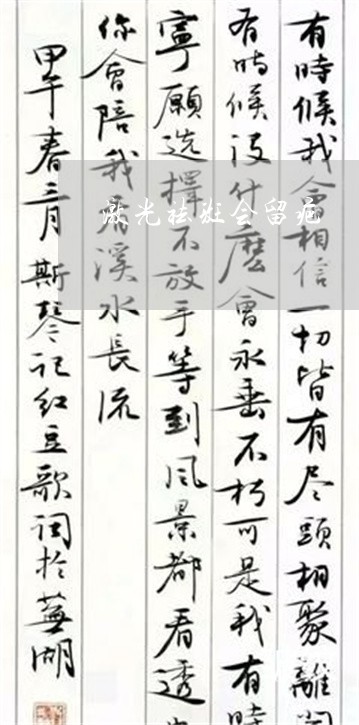 有時候我會相信一切皆有尽頭相聚離
有時候没什麽會永垂不朽可是我有時
寧願选擇不放手等到风景都看透
你會陪我看溪水長流
甲午春三月斯琴记红豆歌词於蕪湖
激光祛斑会留疤